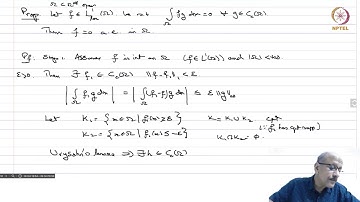 Ω ⊂ ℝᴺ open
Prop: Let f ∈ L¹loc(Ω). Let ∫Ω fg dx = 0 ∀ g ∈ Cc(Ω).
Then f = 0 a.e. in Ω.
Pf: Step 1. Assume f is int on Ω (f ∈ L¹(Ω)) and |Ω| < +∞.
ε>0. Then ∃ f₁ ∈ Cc(Ω) ‖f-f₁‖₁ < ε.
|∫Ω f₁ g dx| = |∫Ω (f₁-f) g dx| ≤ ε ‖g‖∞
Let K₁ = {x ∈ Ω | f₁(x) ≥ ε} K = K₁ ∪ K₂ cpt
K₂ = {x ∈ Ω | f₁(x) ≤ -ε} (∵ f₁ has cpt supp)
K₁ ∩ K₂ = φ.
Urysohn's lemma ⇒ ∃ h ∈ Cc(Ω)
NPTEL